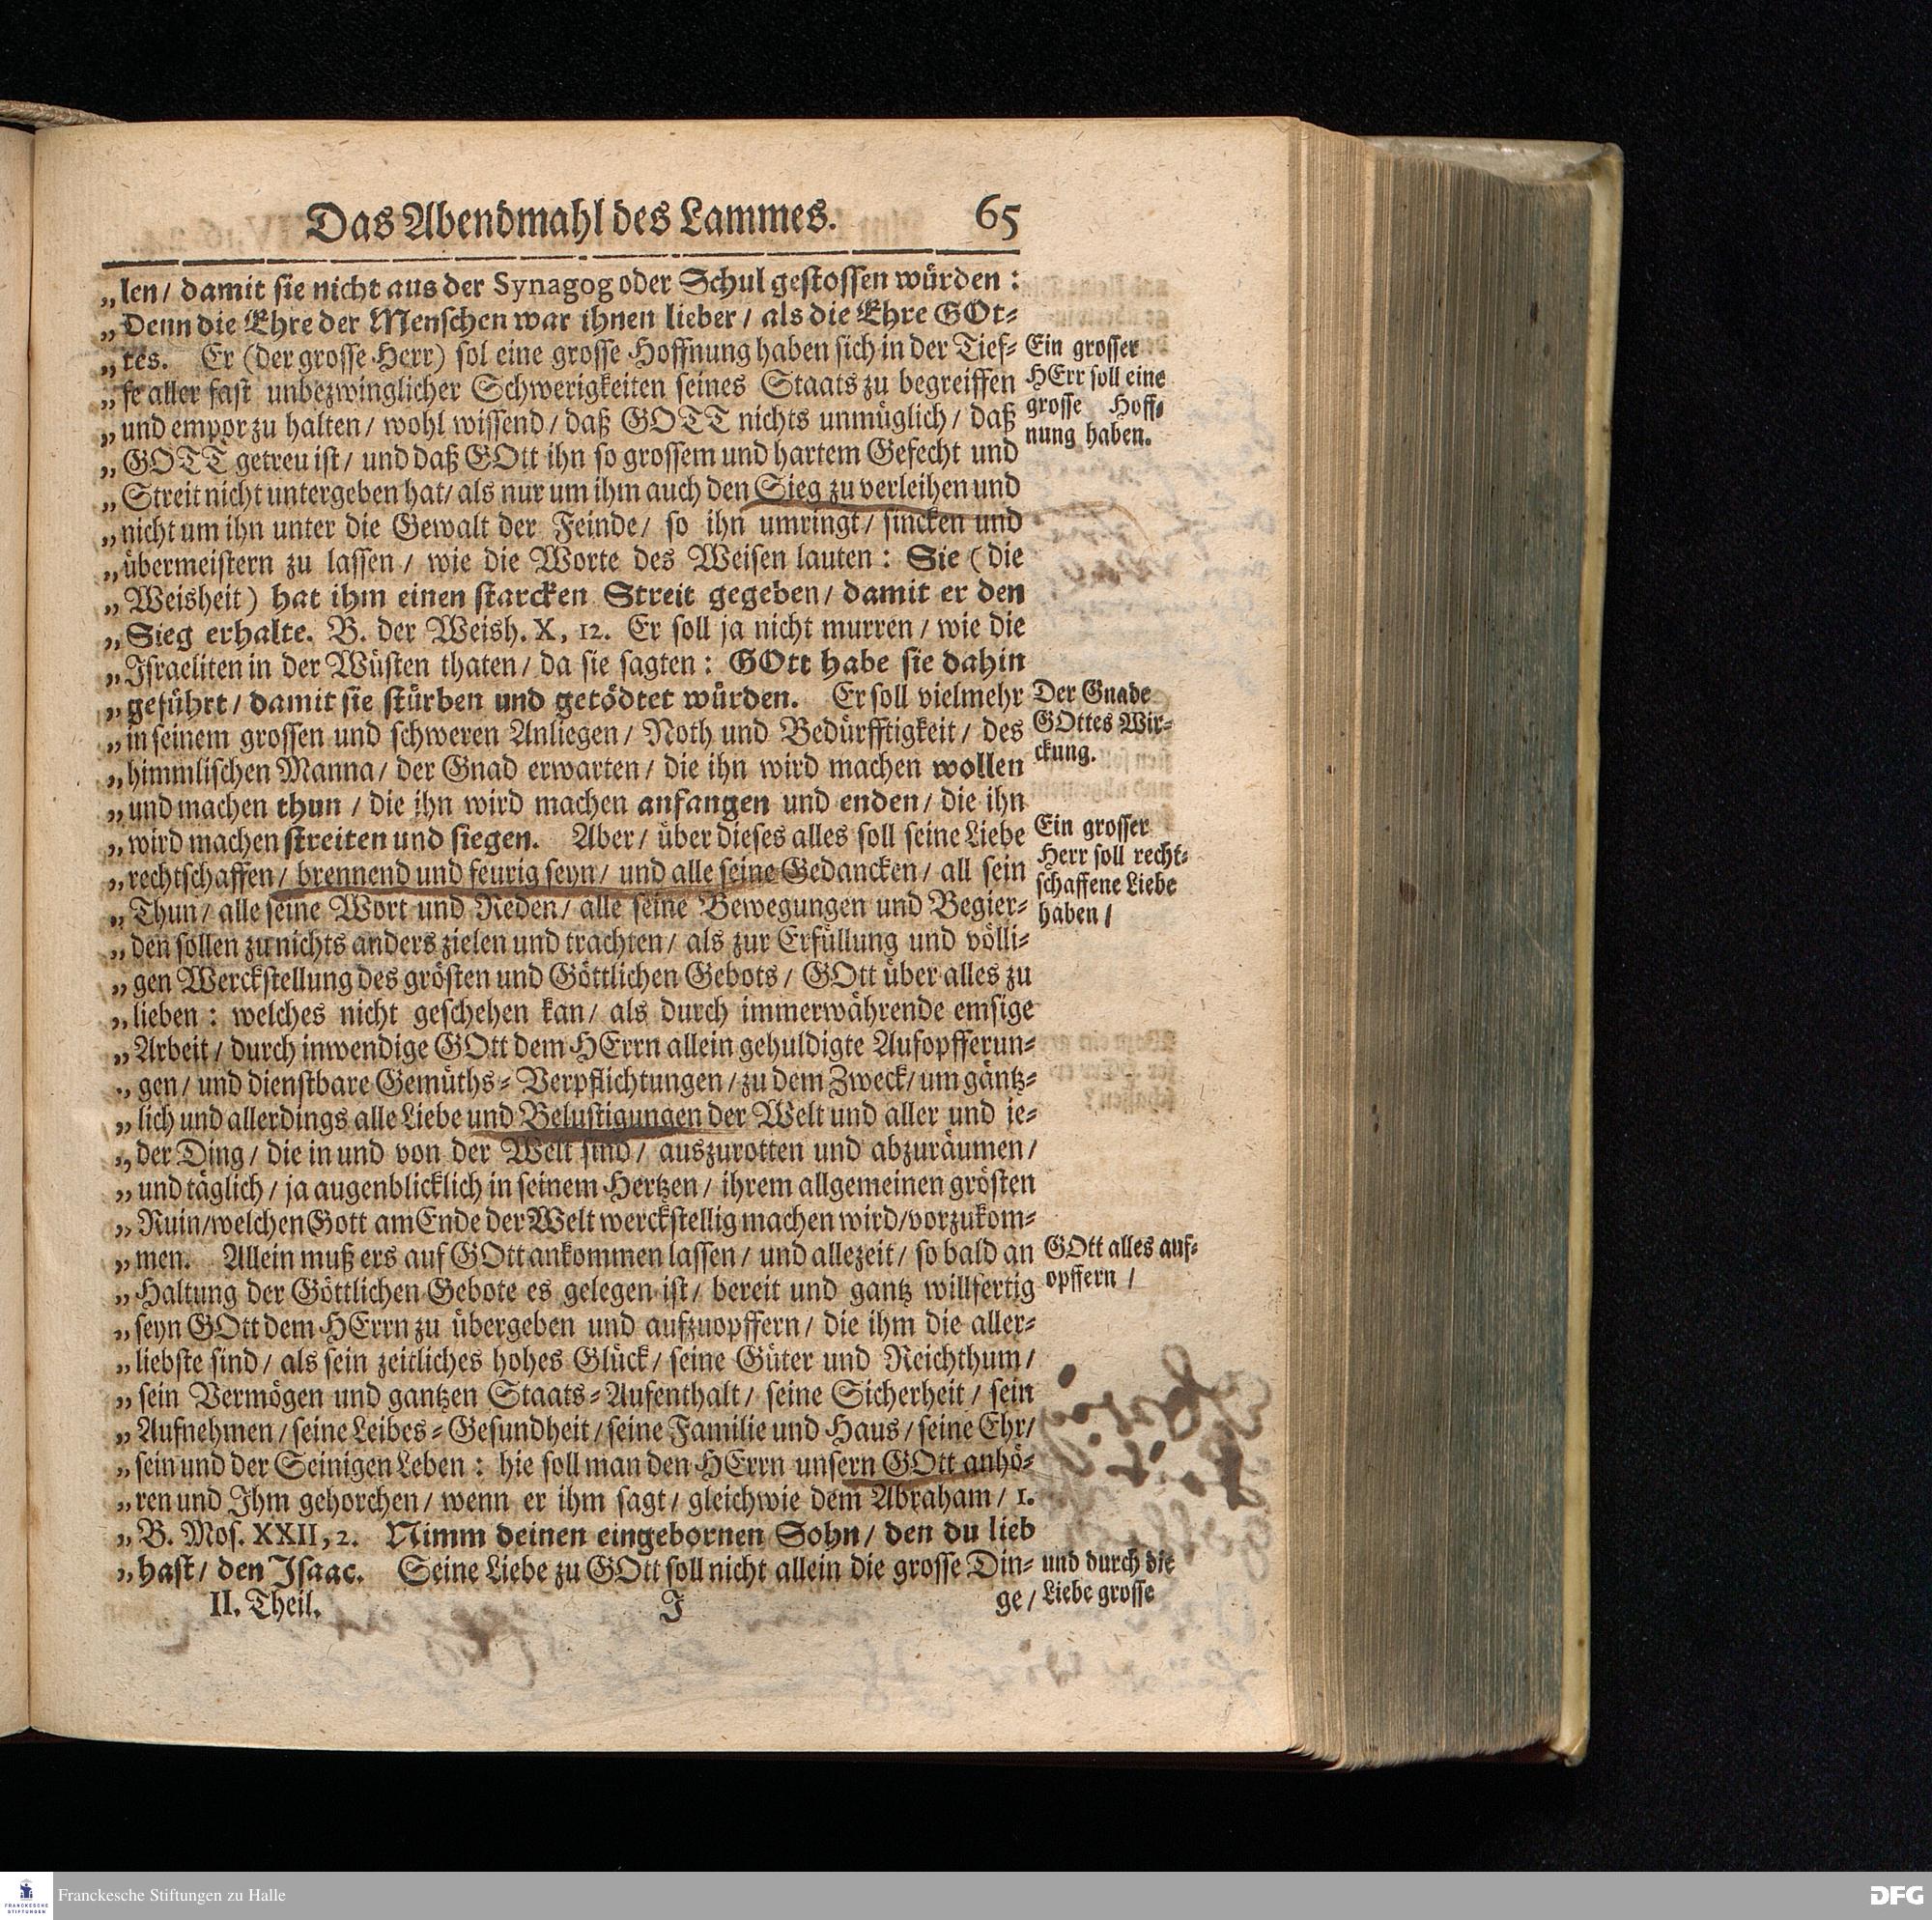 Das Abendmahl des Lammes. 65
„len/ damit sie nicht aus der Synagog oder Schul gestossen würden:
„Denn die Ehre der Menschen war ihnen lieber/ als die Ehre GOt-
„tes. Er (der grosse Herr) sol eine grosse Hoffnung haben sich in der Tief-
„fe aller fast unbezwinglicher Schwerigkeiten seines Staats zu begreiffen
„und empor zu halten/ wohl wissend/ daß GOTT nichts unmüglich/ daß
„GOTT getreu ist/ und daß GOtt ihn so grossem und hartem Gefecht und
„Streit nicht untergeben hat/ als nur um ihm auch den Sieg zu verleihen und
„nicht um ihn unter die Gewalt der Feinde/ so ihn umringt/ sincken und
„übermeistern zu lassen/ wie die Worte des Weisen lauten: Sie (die
„Weisheit) hat ihm einen starcken Streit gegeben/ damit er den
„Sieg erhalte. B. der Weish. X, 12. Er soll ja nicht murren/ wie die
„Israeliten in der Wüsten thaten/ da sie sagten: GOtt habe sie dahin
„geführt/ damit sie stürben und getödtet würden. Er soll vielmehr
„in seinem grossen und schweren Anliegen/ Noth und Bedürfftigkeit/ des
„himmlischen Manna/ der Gnad erwarten/ die ihn wird machen wollen
„und machen thun/ die ihn wird machen anfangen und enden/ die ihn
„wird machen streiten und siegen. Aber/ über dieses alles soll seine Liebe
„rechtschaffen/ brennend und feurig seyn/ und alle seine Gedancken/ all sein
„Thun/ alle seine Wort und Reden/ alle seine Bewegungen und Begier-
„den sollen zu nichts anders zielen und trachten/ als zur Erfüllung und völli-
„gen Werckstellung des grösten und Göttlichen Gebots/ GOtt über alles zu
„lieben: welches nicht geschehen kan/ als durch immerwährende emsige
„Arbeit/ durch inwendige GOtt dem HErrn allein gehuldigte Aufopfferun-
„gen/ und dienstbare Gemüths-Verpflichtungen/ zu dem Zweck/ um gäntz-
„lich und allerdings alle Liebe und Belustigungen der Welt und aller und je-
„der Ding/ die in und von der Welt sind/ auszurotten und abzuräumen/
„und täglich/ ja augenblicklich in seinem Hertzen/ ihrem allgemeinen grösten
„Ruin/ welchen Gott am Ende der Welt werckstellig machen wird/ vorzukom-
„men. Allein muß ers auf GOtt ankommen lassen/ und allezeit/ so bald an
„Haltung der Göttlichen Gebote es gelegen ist/ bereit und gantz willfertig
„seyn GOtt dem HErrn zu übergeben und aufzuopffern/ die ihm die aller-
„liebste sind/ als sein zeitliches hohes Glück/ seine Güter und Reichthum/
„sein Vermögen und gantzen Staats-Aufenthalt/ seine Sicherheit/ sein
„Aufnehmen/ seine Leibes-Gesundheit/ seine Familie und Haus/ seine Ehr/
„sein und der Seinigen Leben: hie soll man den HErrn unsern GOtt anhö-
„ren und Ihm gehorchen/ wenn er ihm sagt/ gleichwie dem Abraham/ 1.
„B. Mos. XXII, 2. Nimm deinen eingebornen Sohn/ den du lieb
„hast/ den Isaac. Seine Liebe zu GOtt soll nicht allein die grosse Din-
II. Theil. J ge/
Ein grosser
HErr soll eine
grosse Hoff-
nung haben.
Der Gnade
GOttes Wir-
ckung.
Ein grosser
Herr soll recht-
schaffene Liebe
haben/
GOtt alles auf-
opffern/
und durch die
Liebe grosse
Franckesche Stiftungen zu Halle
FRANCKESCHE
STIFTUNGEN
DFG